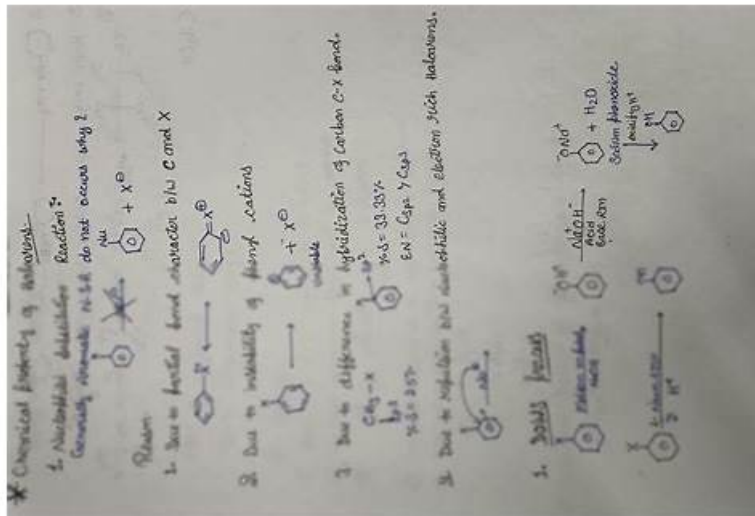 * Chemical property of Haloarens:-
1. Nucleophilic substitution Reaction:-
Generally aromatic N.S.R do not occurs why?
Nu
+ X⊖
Reason
1. Due to partial bond character b/w C and X
X
X⊕
2. Due to instability of phenyl cations
+ X⊖
unstable
3. Due to difference in hybridization of Carbon C-X bond.
CH3-X
sp3
sp2
% S = 25%
% S = 33.33%
EN = Csp2 > Csp3
4. Due to repulsion b/w nucleophilic and electron rich Haloarens.
1. DOWS process
NaOH
OH
Na+OH-
Acid
Base Rxn
-ONa+
+ H2O
Sodium phenoxide
OH
X
H+
OH